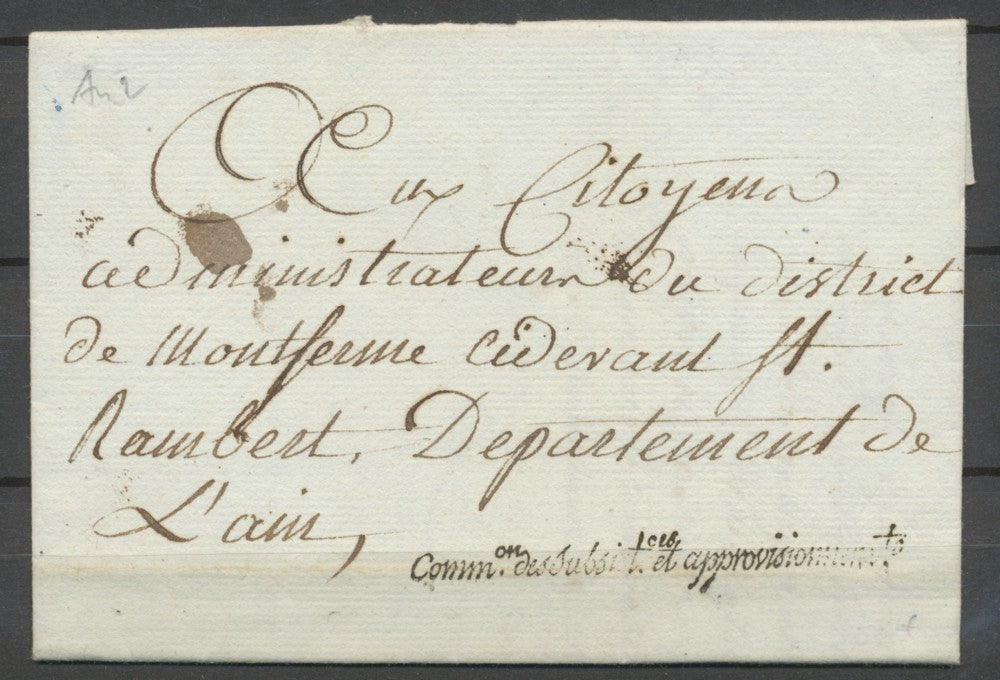 An 2
Aux Citoyens
administrateurs du district
de Montferme Cidevant St.
Rambert, Departement de
L'ain,
Comm.on des Subsist.ces et approvisionnem.ts